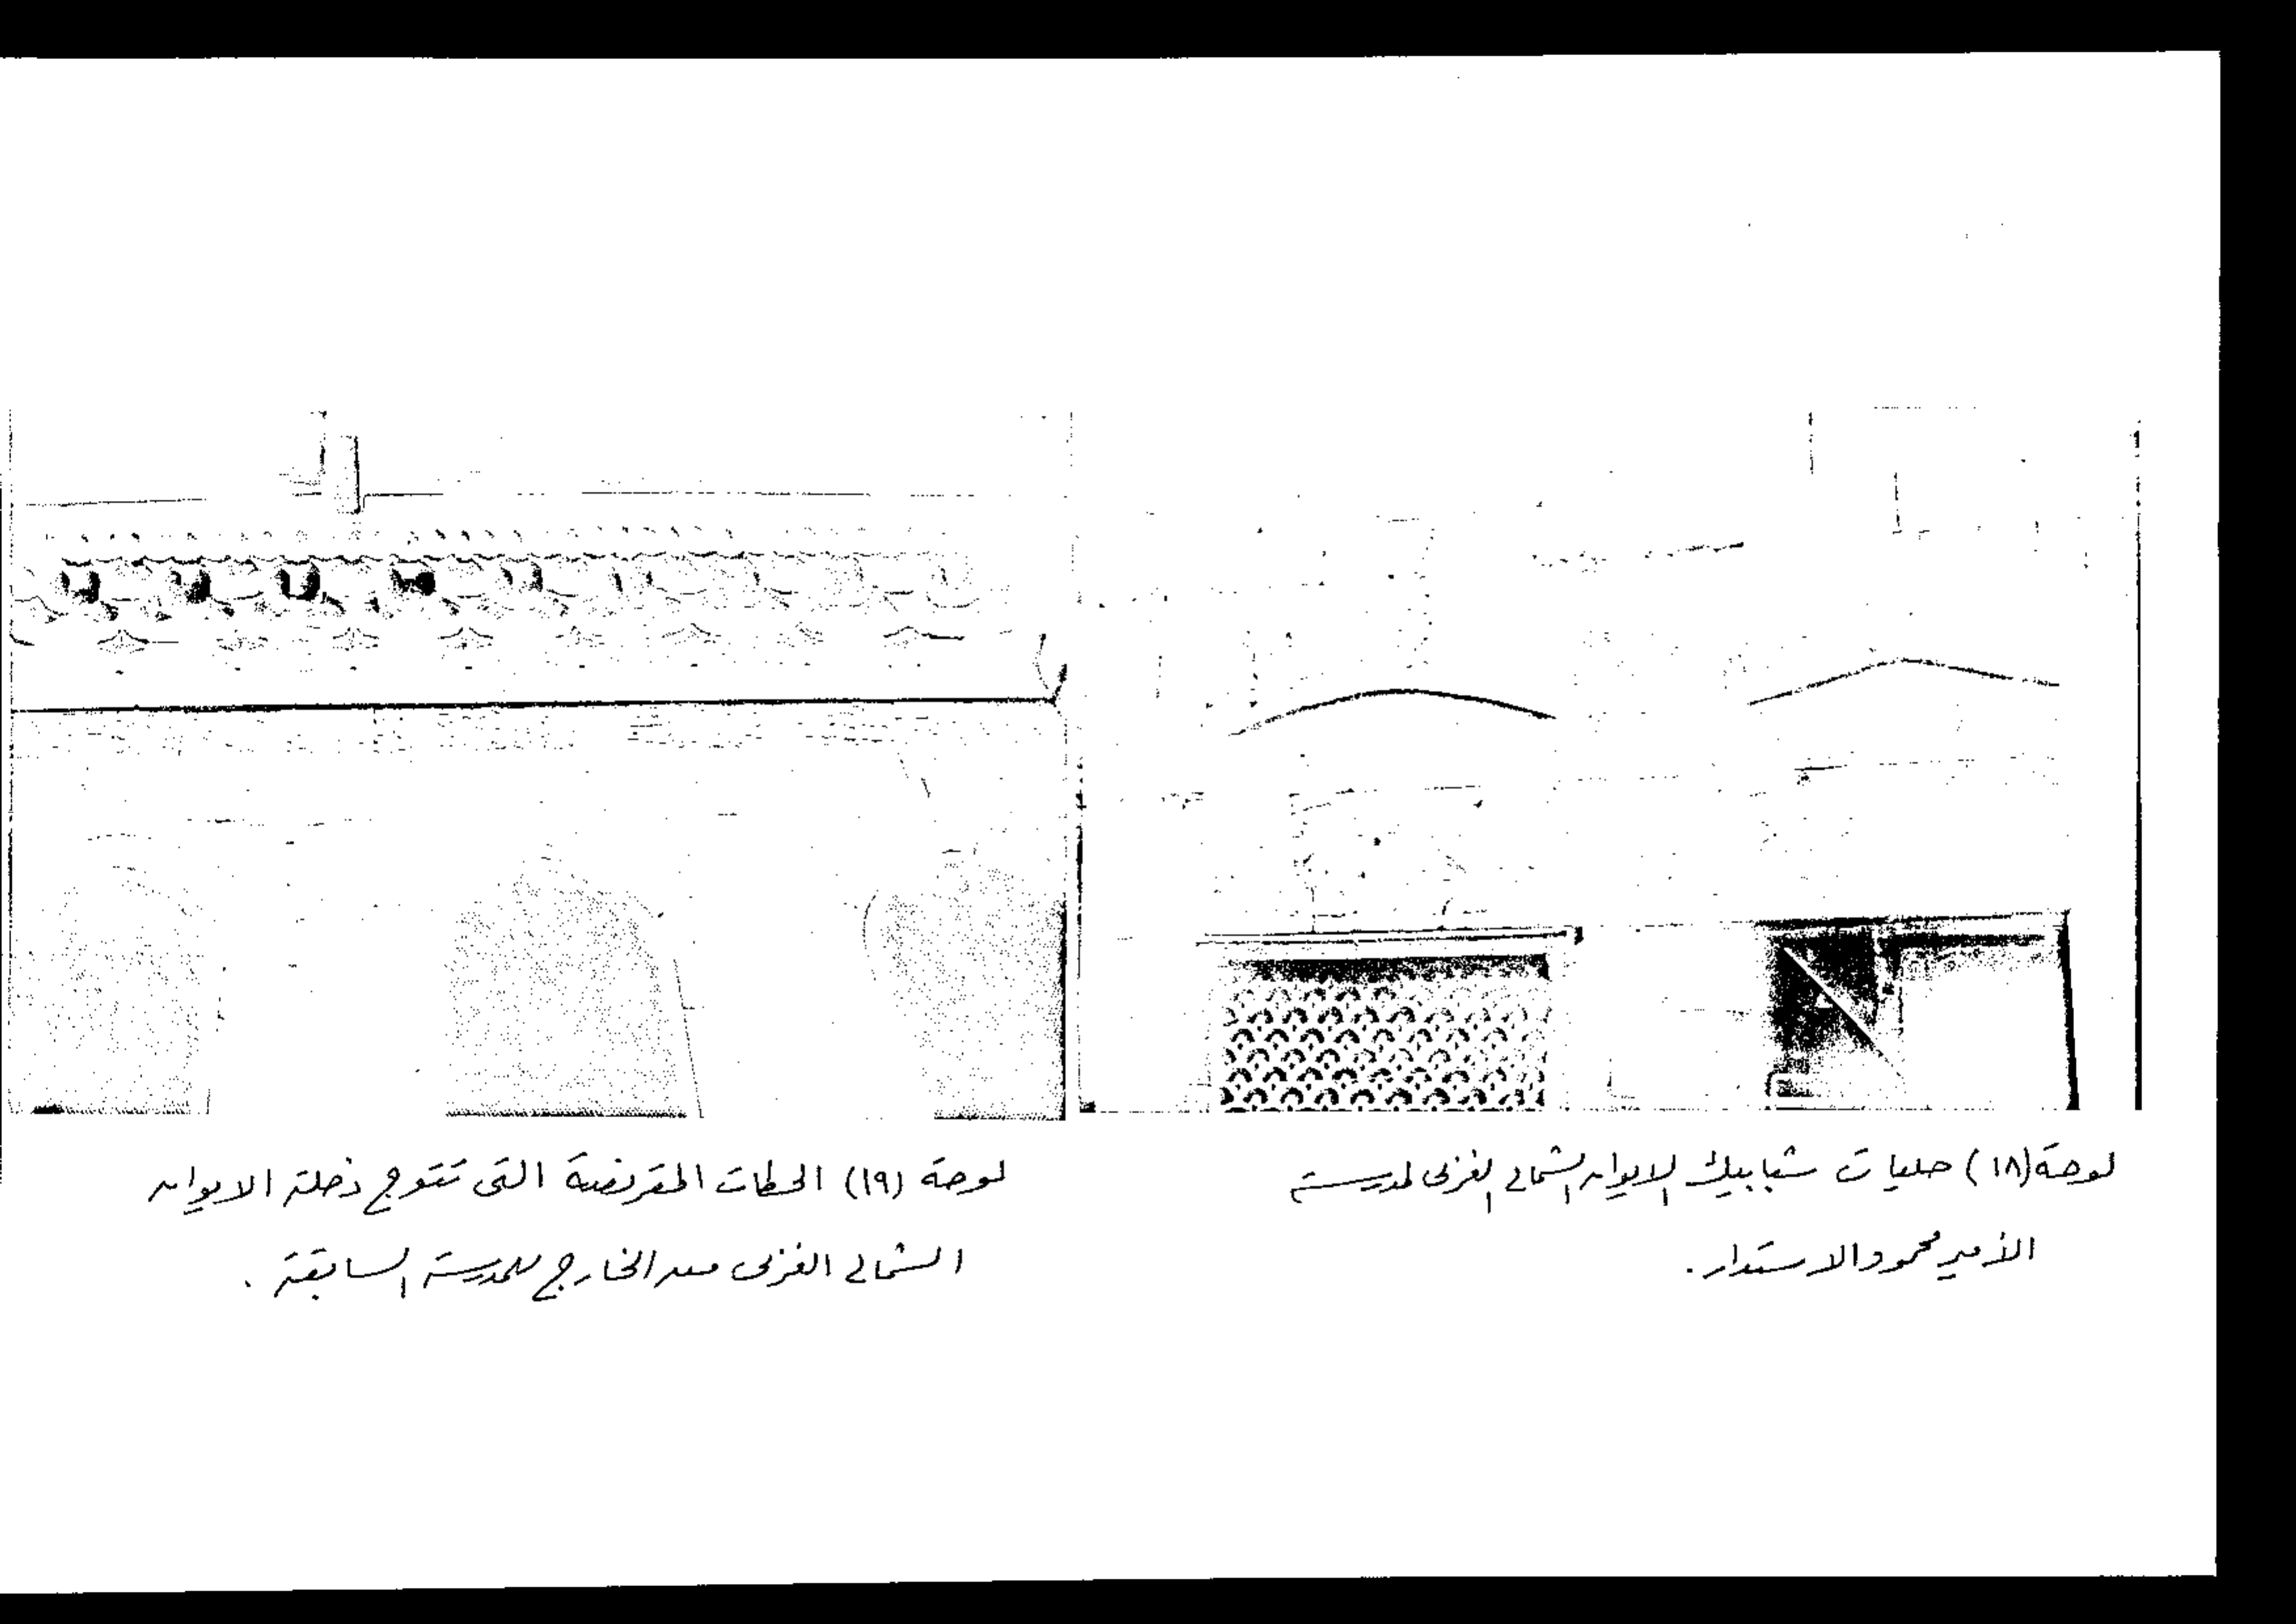 لوحة (١٨) حليات شبابيك الايوان الشمالى الغربى لمدرسة
الأمير محمود الاستدار.
لوحة (١٩) الحطات المقرنصة التى تتوج دخلة الايوان
الشمالى الغربى من الخارج للمدرسة السابقة.